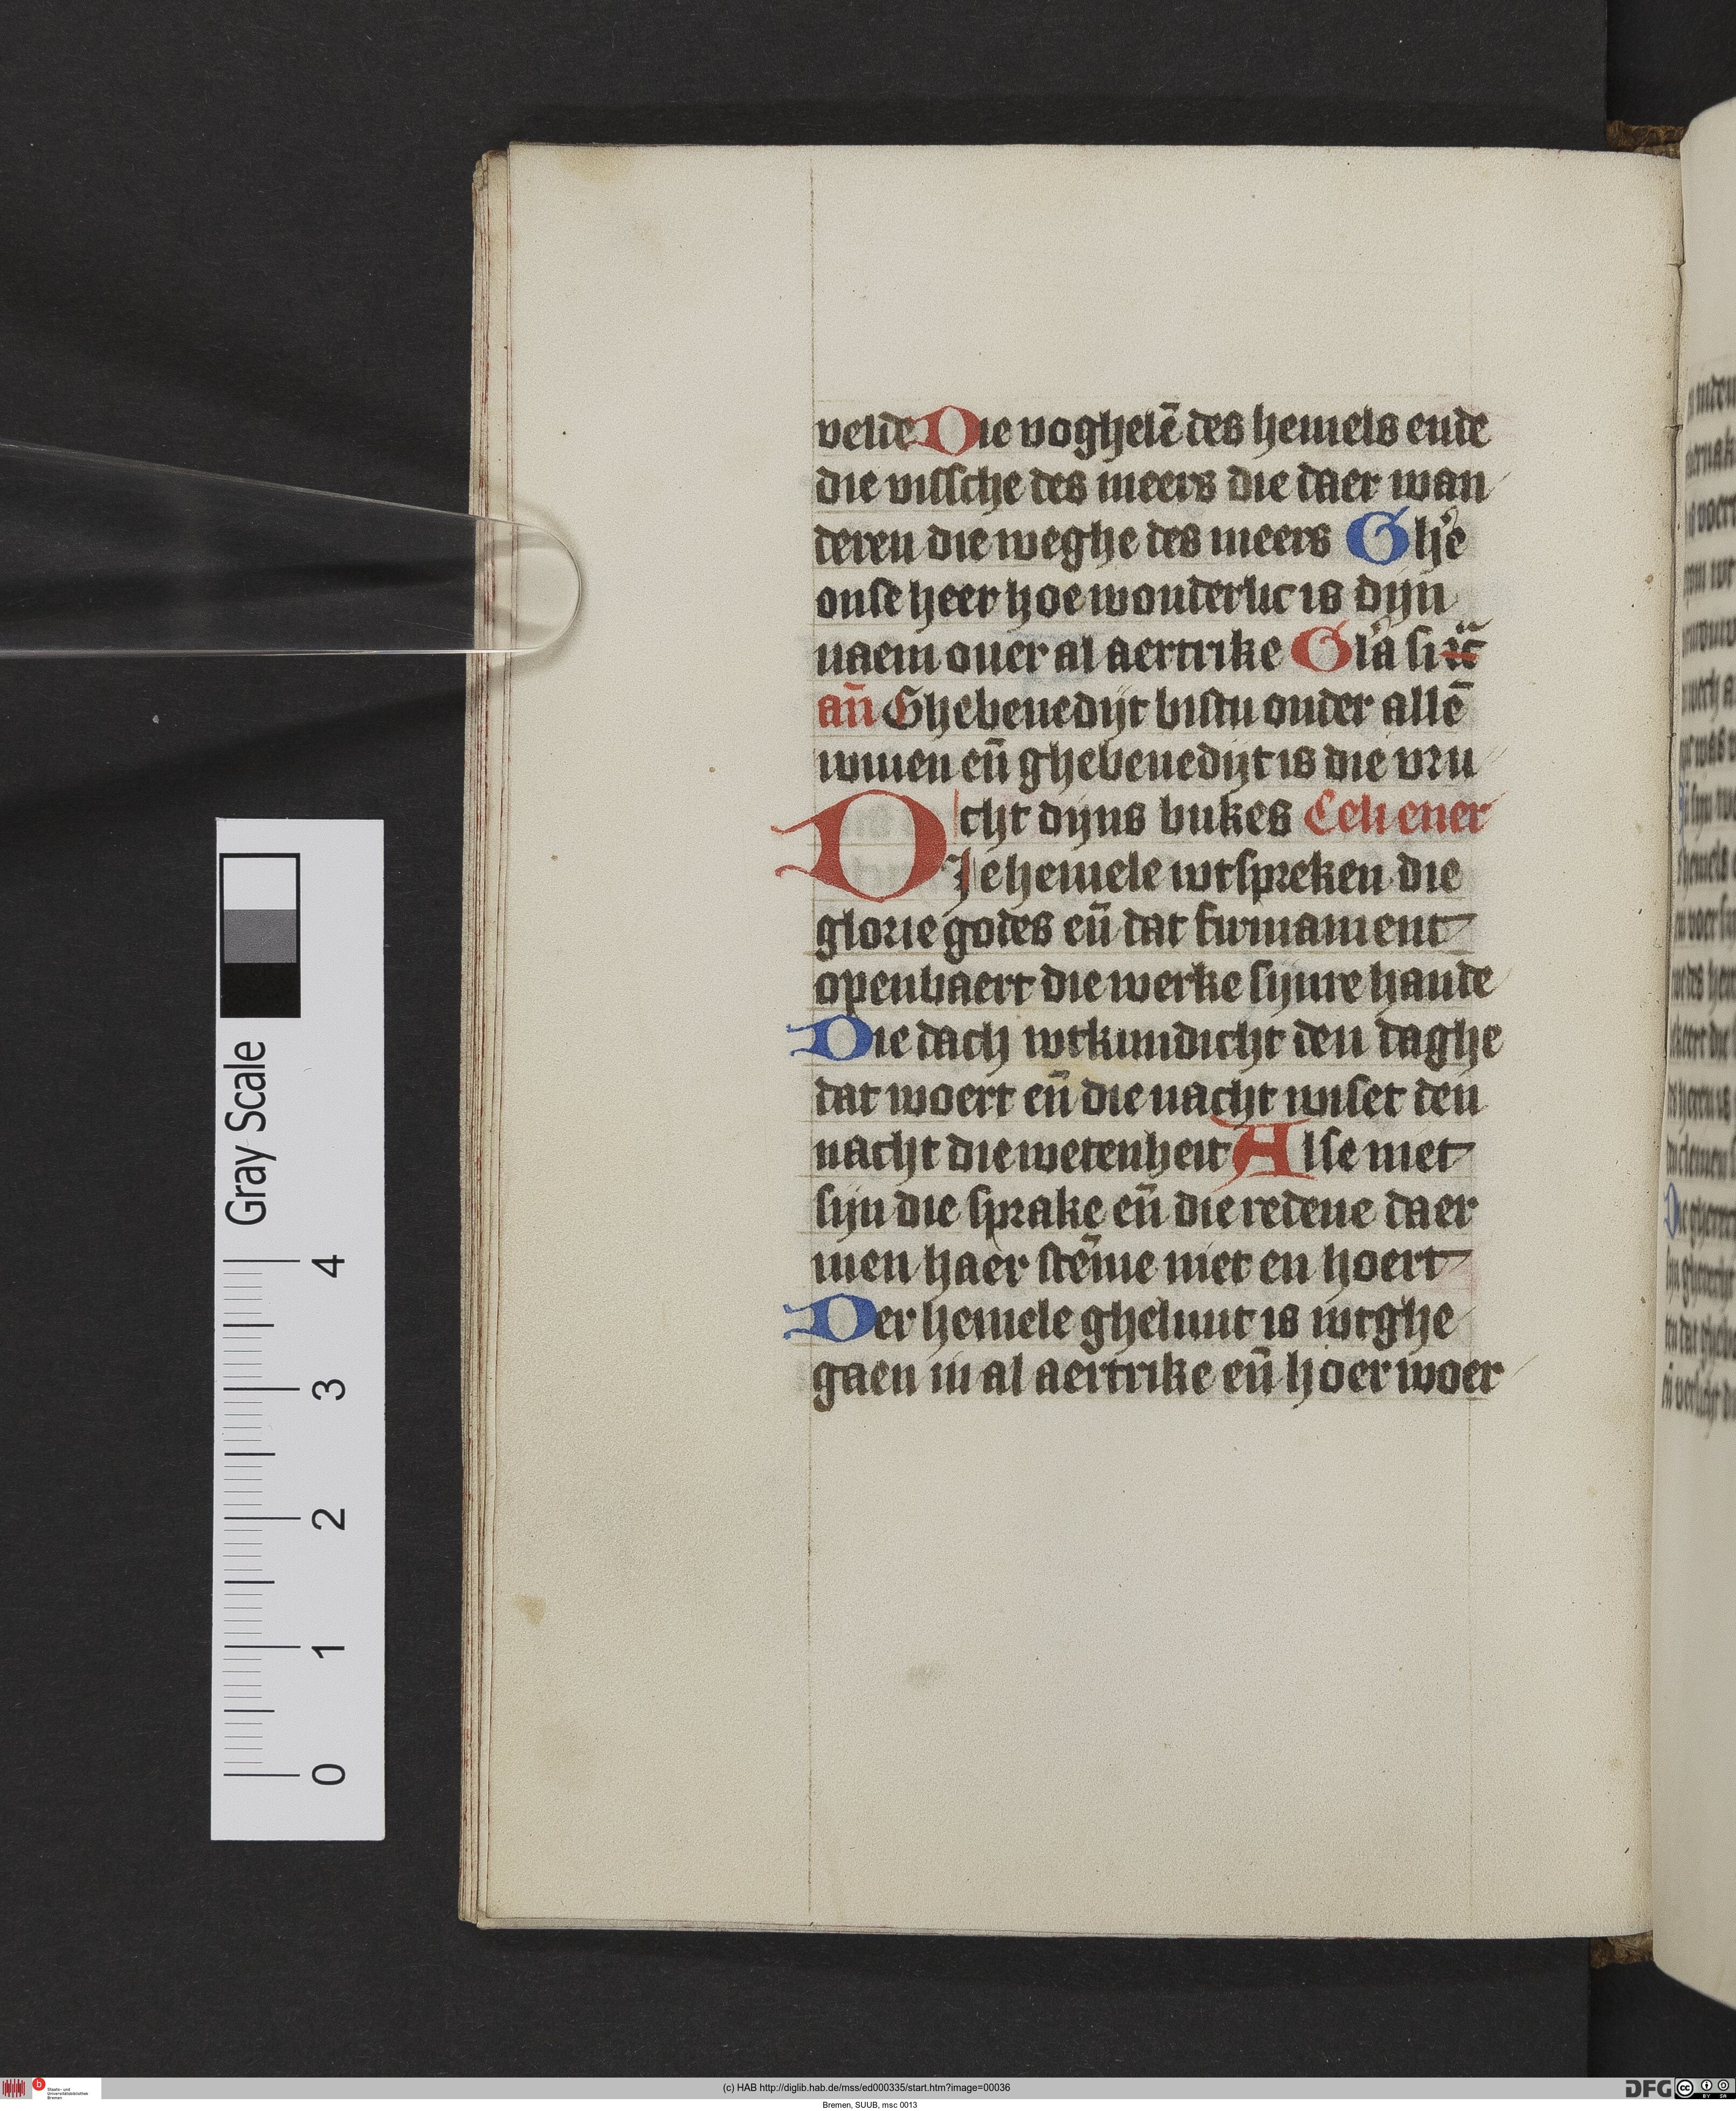 velde Die voghelē des hemels ende
die vissche des meers die daer wan
deren die weghe des meers Ghe
onse heer hoe wonderlic is dijn
naem ouer al aertrike Gl'a si
an̄ Ghebenedijt bistu onder allē
wiuen en̄ ghebenedijt is die vru
cht dijns bukes Celi ener
Die hemele wtspreken die
glorie godes en̄ dat firmament
openbaert die werke sijnre hande
Die dach wtkundicht den daghe
dat woert en̄ die nacht wiset den
nacht die wetenheit Alse niet
sijn die sprake en̄ die redene daer
men haer stēme niet en hoert
Der hemele gheluut is wtghe
gaen in al aertrike en̄ hoer woer
Gray Scale
4
3
2
1
0
(c) HAB http://diglib.hab.de/mss/ed000335/start.htm?image=00036
Bremen, SUUB, msc 0013
Staats- und
Universitätsbibliothek
Bremen
DFG
CC BY SA